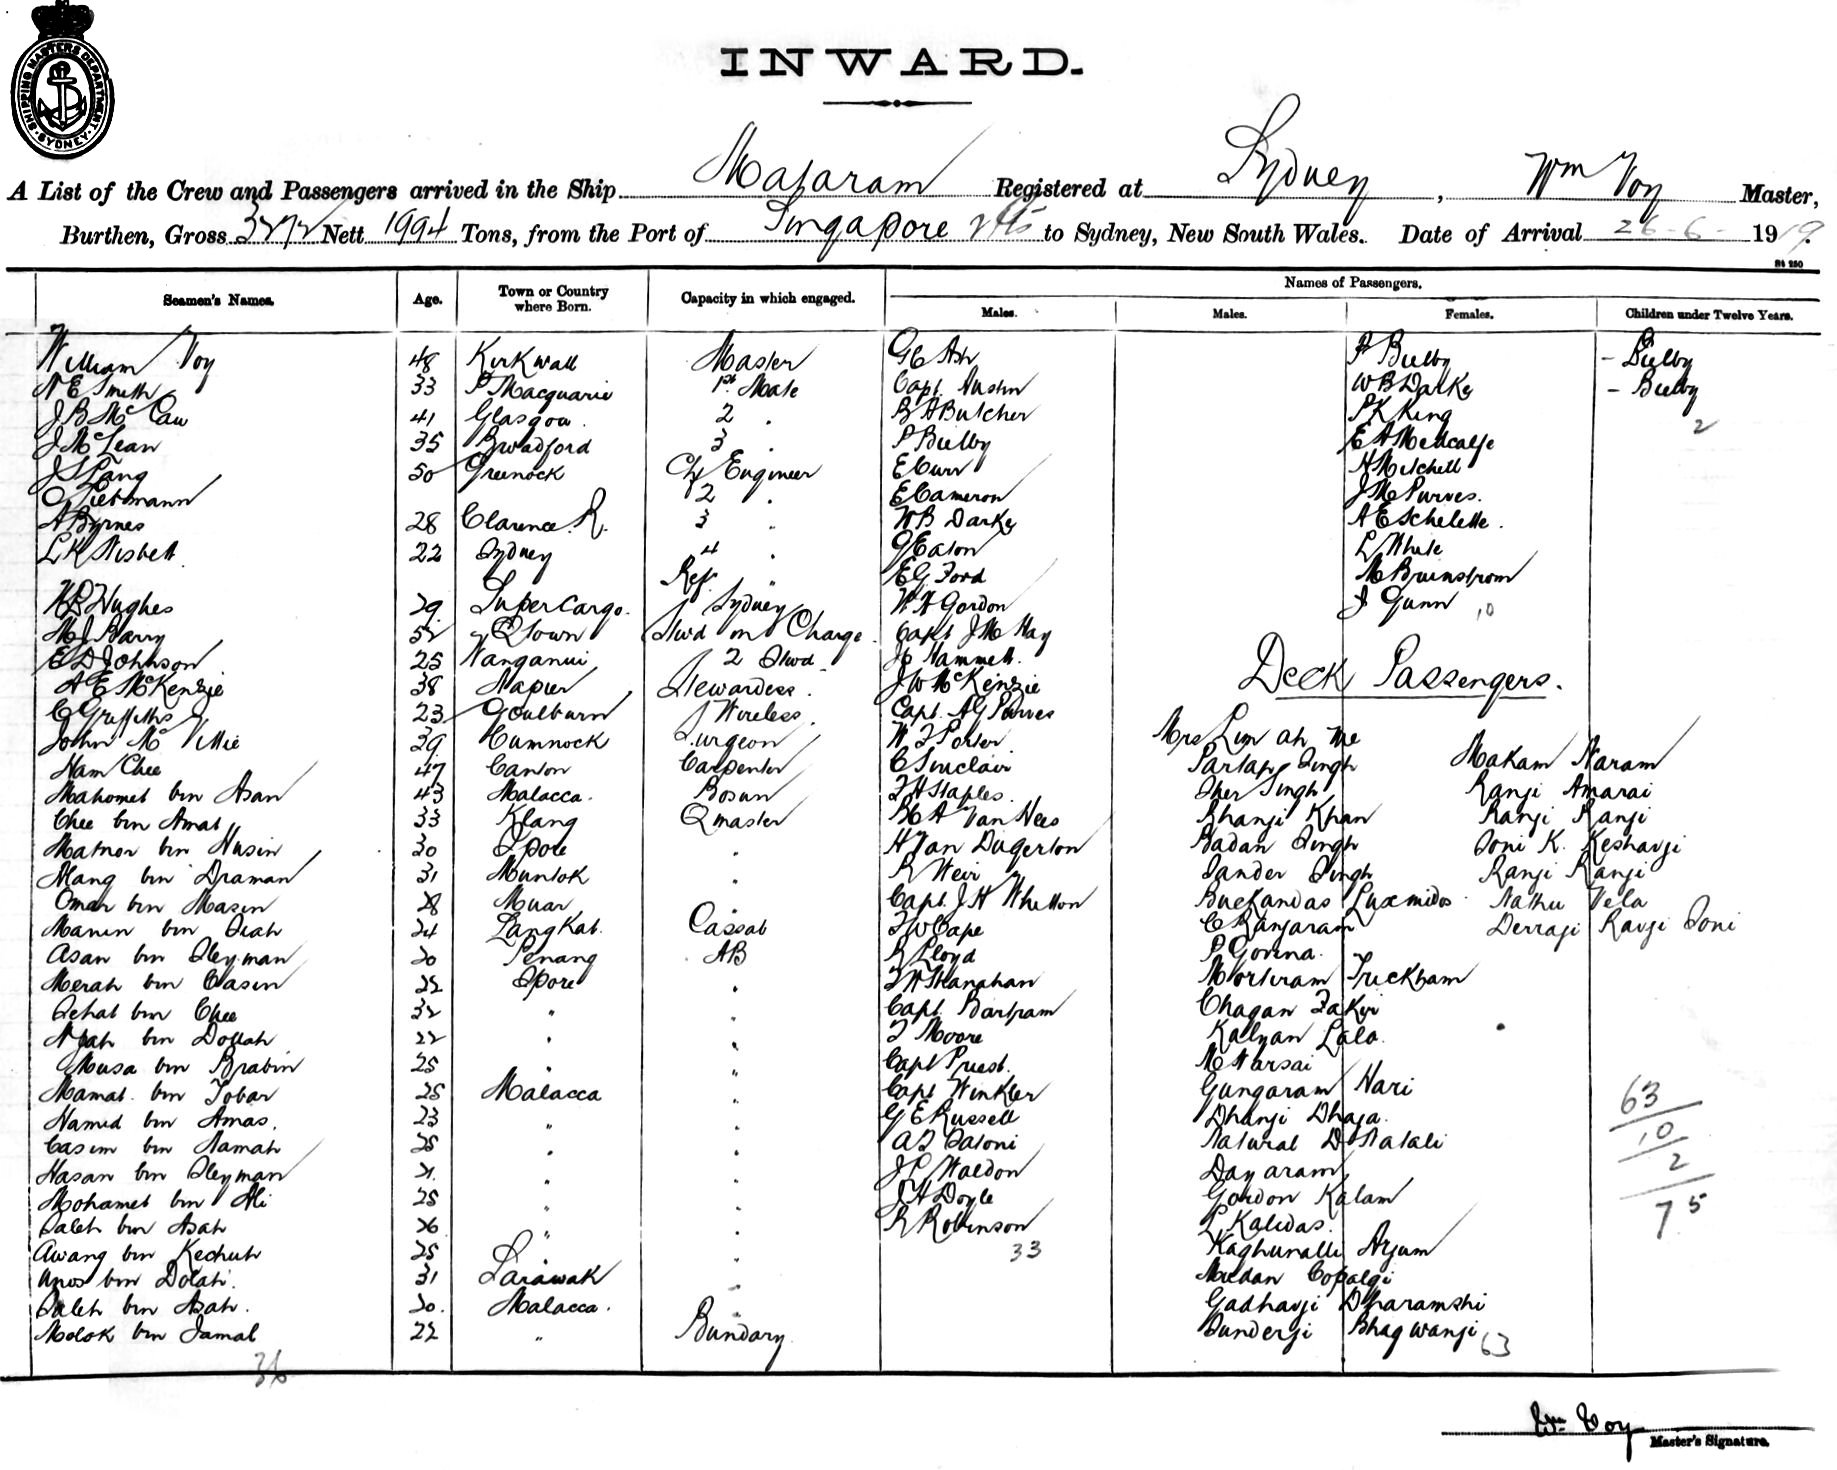 SHIPPING MASTERS DEPARTMENT · SYDNEY ·
INWARD.
A List of the Crew and Passengers arrived in the Ship Mataram Registered at Sydney, Wm Voy Master,
Burthen, Gross Nett 1994 Tons, from the Port of Singapore to Sydney, New South Wales. Date of Arrival 26-6-1919.
St 250
Seamen's Names. Age. Town or Country where Born. Capacity in which engaged. Names of Passengers.
Males. Males. Females. Children under Twelve Years.
William Voy 48 Kirkwall Master G C Ash P Bielby - Bielby
N E Smith 33 P Macquarie 1st Mate Capt. Austin W B Darke - Bielby
J B McCaw 41 Glasgow. 2 . R A Butcher P K King 2
J McLean 35 Bradford 3 . P Bielby E A Metcalfe
J S Lang 50 Greenock Ch Engineer E Curr H Mitchell
C Liebmann 2 . E Cameron J M Purves.
A Byrnes 28 Clarence R. 3 " W B Darke A E Schelette.
L K Nisbett 22 Sydney 4 . G Eaton L White
Ref. " E G Ford M Brunstrom
H B Hughes 29. Supercargo. Sydney W H Gordon J Gunn 10
M J Barry 52 Qtown Stwd in Charge. Capt J M Hay
E D Johnson 25 Wanganui 2 Stwd J C Hammett.
A E McKenzie 38 Napier Stewardess. J W McKenzie Deck Passengers.
C Griffiths 23 Goulburn Wireless. Capt. A G Purves
John McVittie 39 Cumnock Surgeon W J Porter Mrs Lim ah me
Nam Chee 47 Canton Carpenter C Sinclair Partap Singh Makam Naram
Mahomet bin Asan 43 Malacca. Bosun T H Staples. Sher Singh Ranji Amarai
Chee bin Amat 33 Klang Qmaster R A Van Hees Bhanji Khan Ranji Ranji
Matnor bin Husin 30 Spore " H Van Dugerton Badan Singh Soni K. Keshavji
Alang bin Draman 31 Muntok " R Weir Sander Singh Ranji Ranji
Omar bin Masin 28 Muar " Capt. J H Whetton Luxmidos Nathu Vela
Manin bin Siah 24 Langkat. Cassab T W Cape C Ranjaram Derraji Ravji Soni
Asan bin Sleyman 20 Penang AB R Lloyd P Govina.
Merah bin Casin 22 Spore " T H Shanahan Mortiram Trickham
Sehat bin Chee 32 " " Capt. Bartram Chagan Fakir
Njah bin Dollah 22 " " T Moore Kalyan Lala.
Musa bin Brabin 25 " " Capt Priest. M Narsai
Mamat bin Jobar 25 Malacca " Capt Winkler Gungaram Hari 63
Hamid bin Amas. 23 " " G E Russell Dhanji Dhaja. 10
Casim bin Namah 25 " " A J Satoni Natural D Natali 2
Hasan bin Sleyman 21. " " J P Waldon Dayaram 75
Mohamet bin Ali 25 " " J A Doyle Gordon Kalam
Saleh bin Asah 26 " " R Robinson P Kalidas.
Awang bin Kechuh 25 " " 33 Arjum
bin Dolah. 31 Sarawak " Medan Copalgi
Saleh bin Asah. 30. Malacca. " Gadhavji Dharamshi
Molok bin Jamal 22 " Bundary. Sunderji Bhagwanji 63
36
Wm Voy
Master's Signature.